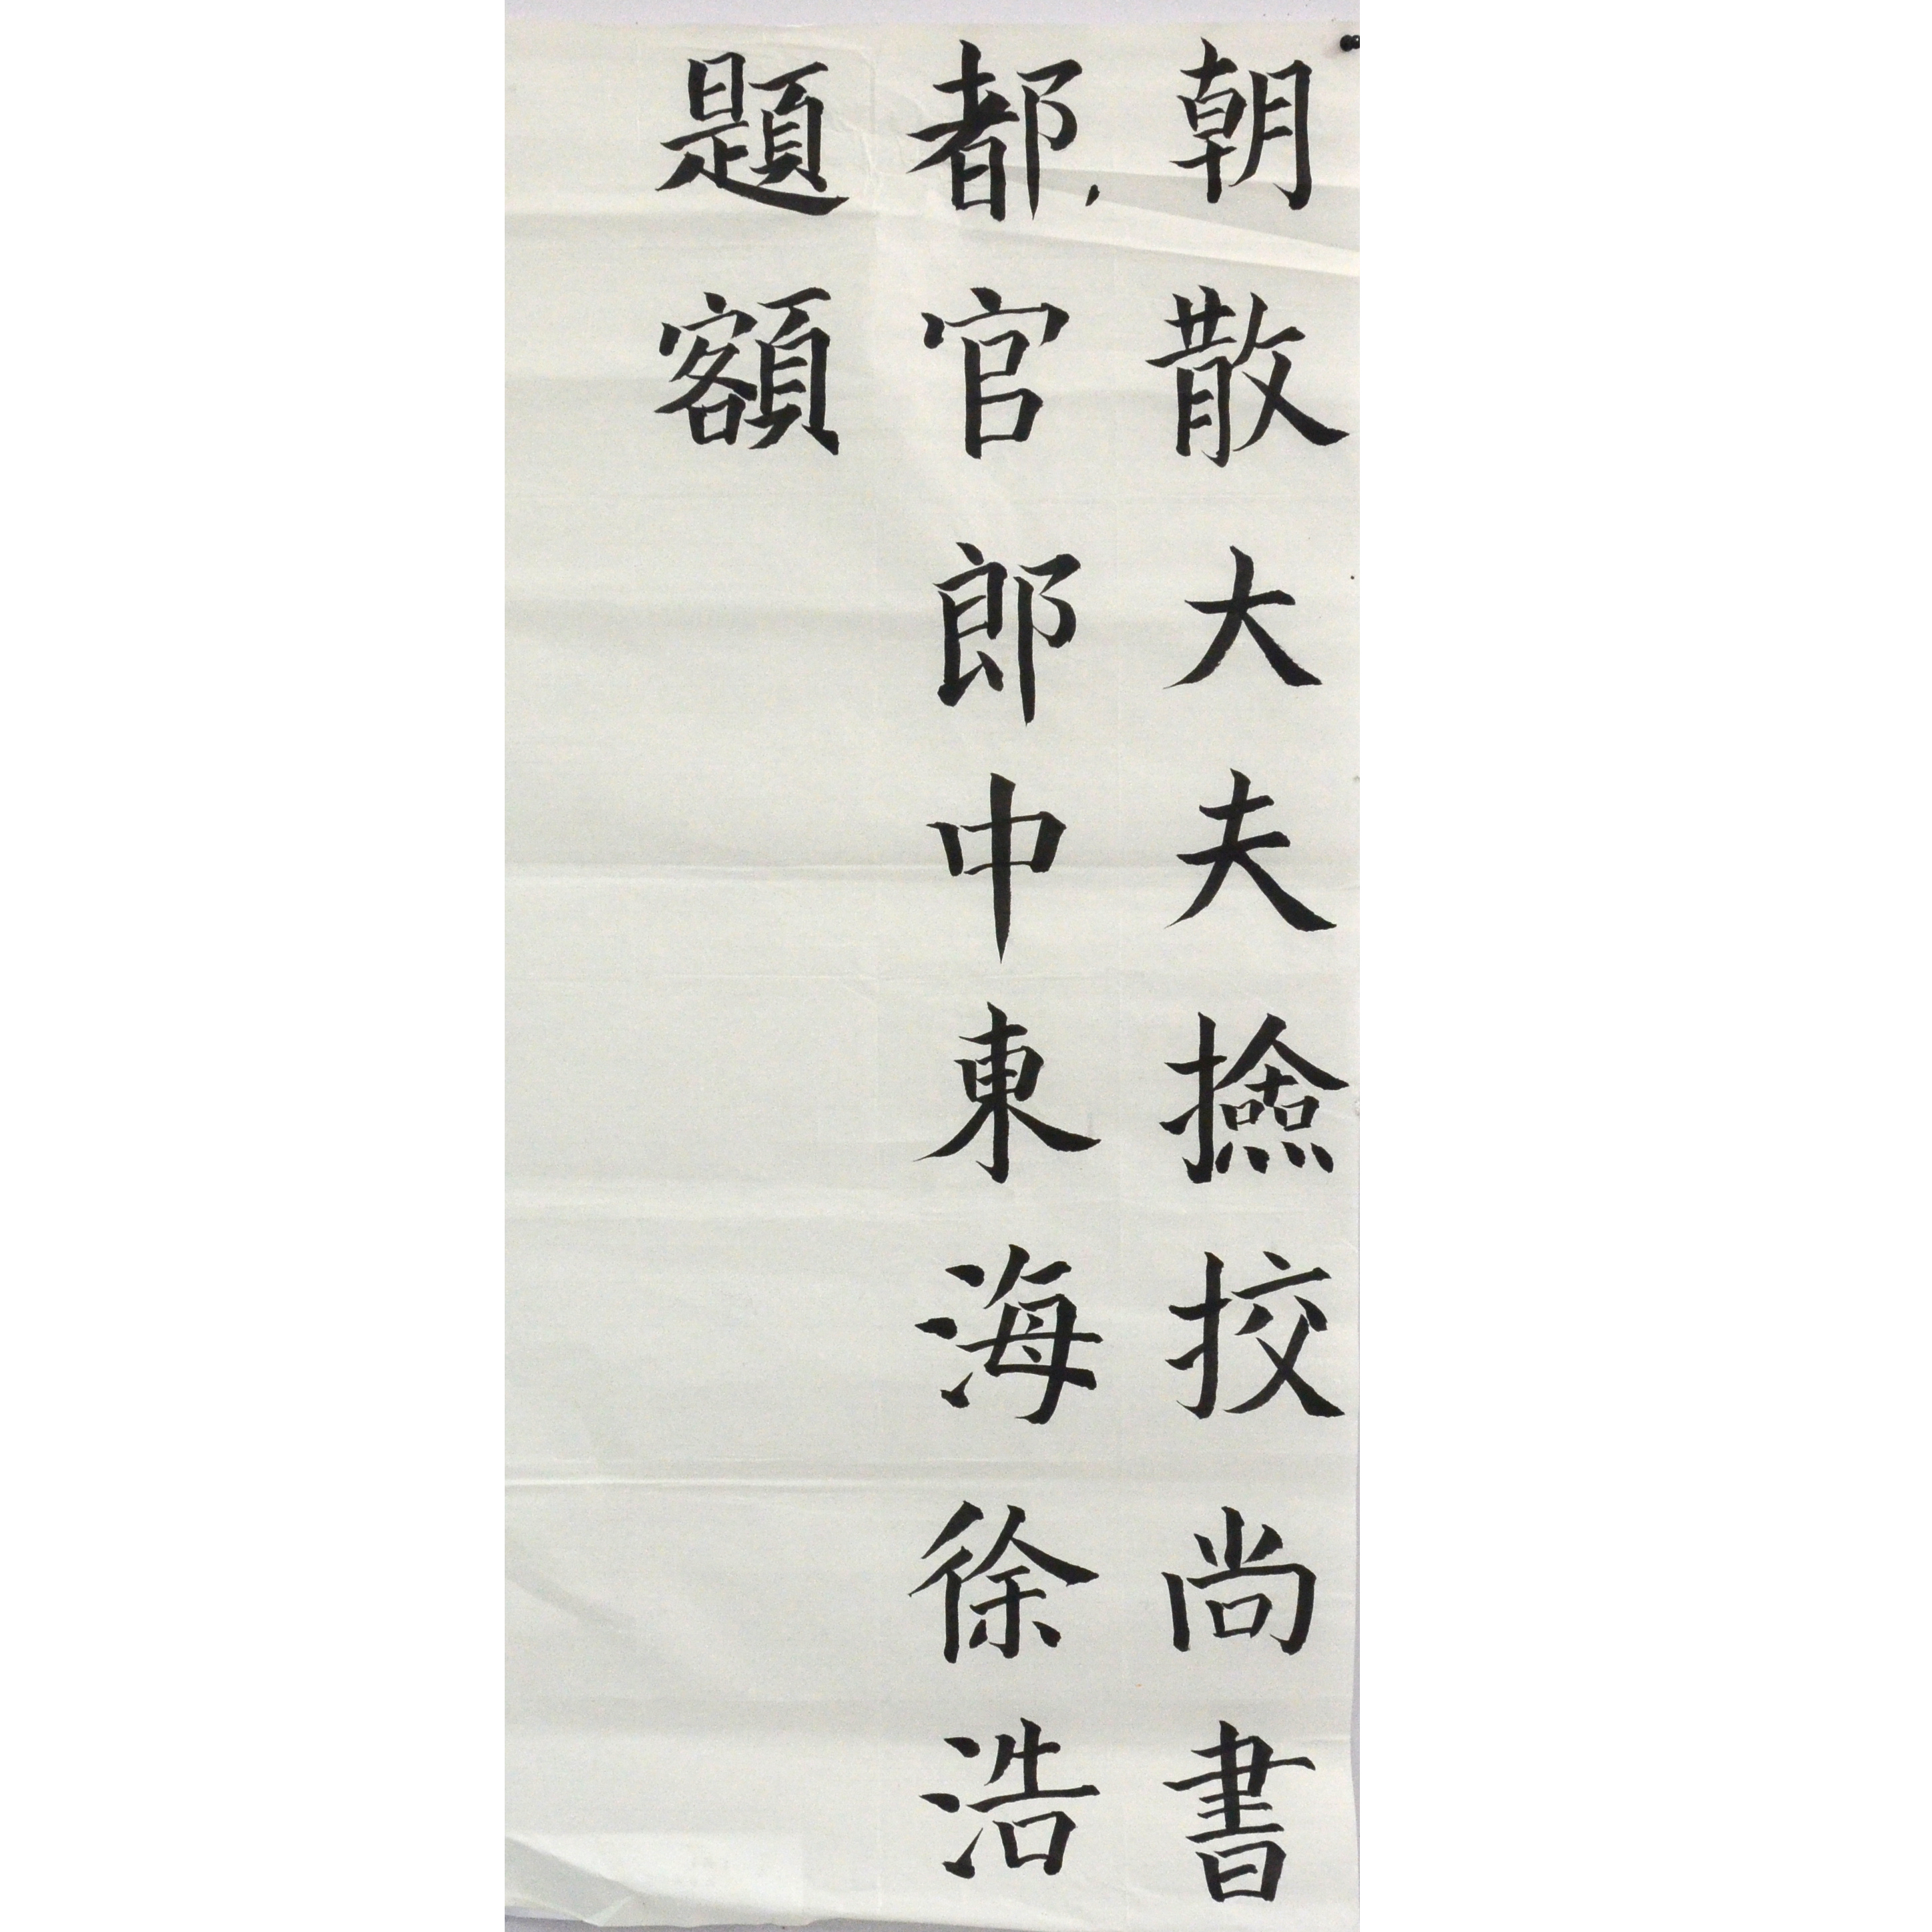 朝散大夫撿挍尚書
都官郎中東海徐浩
題額